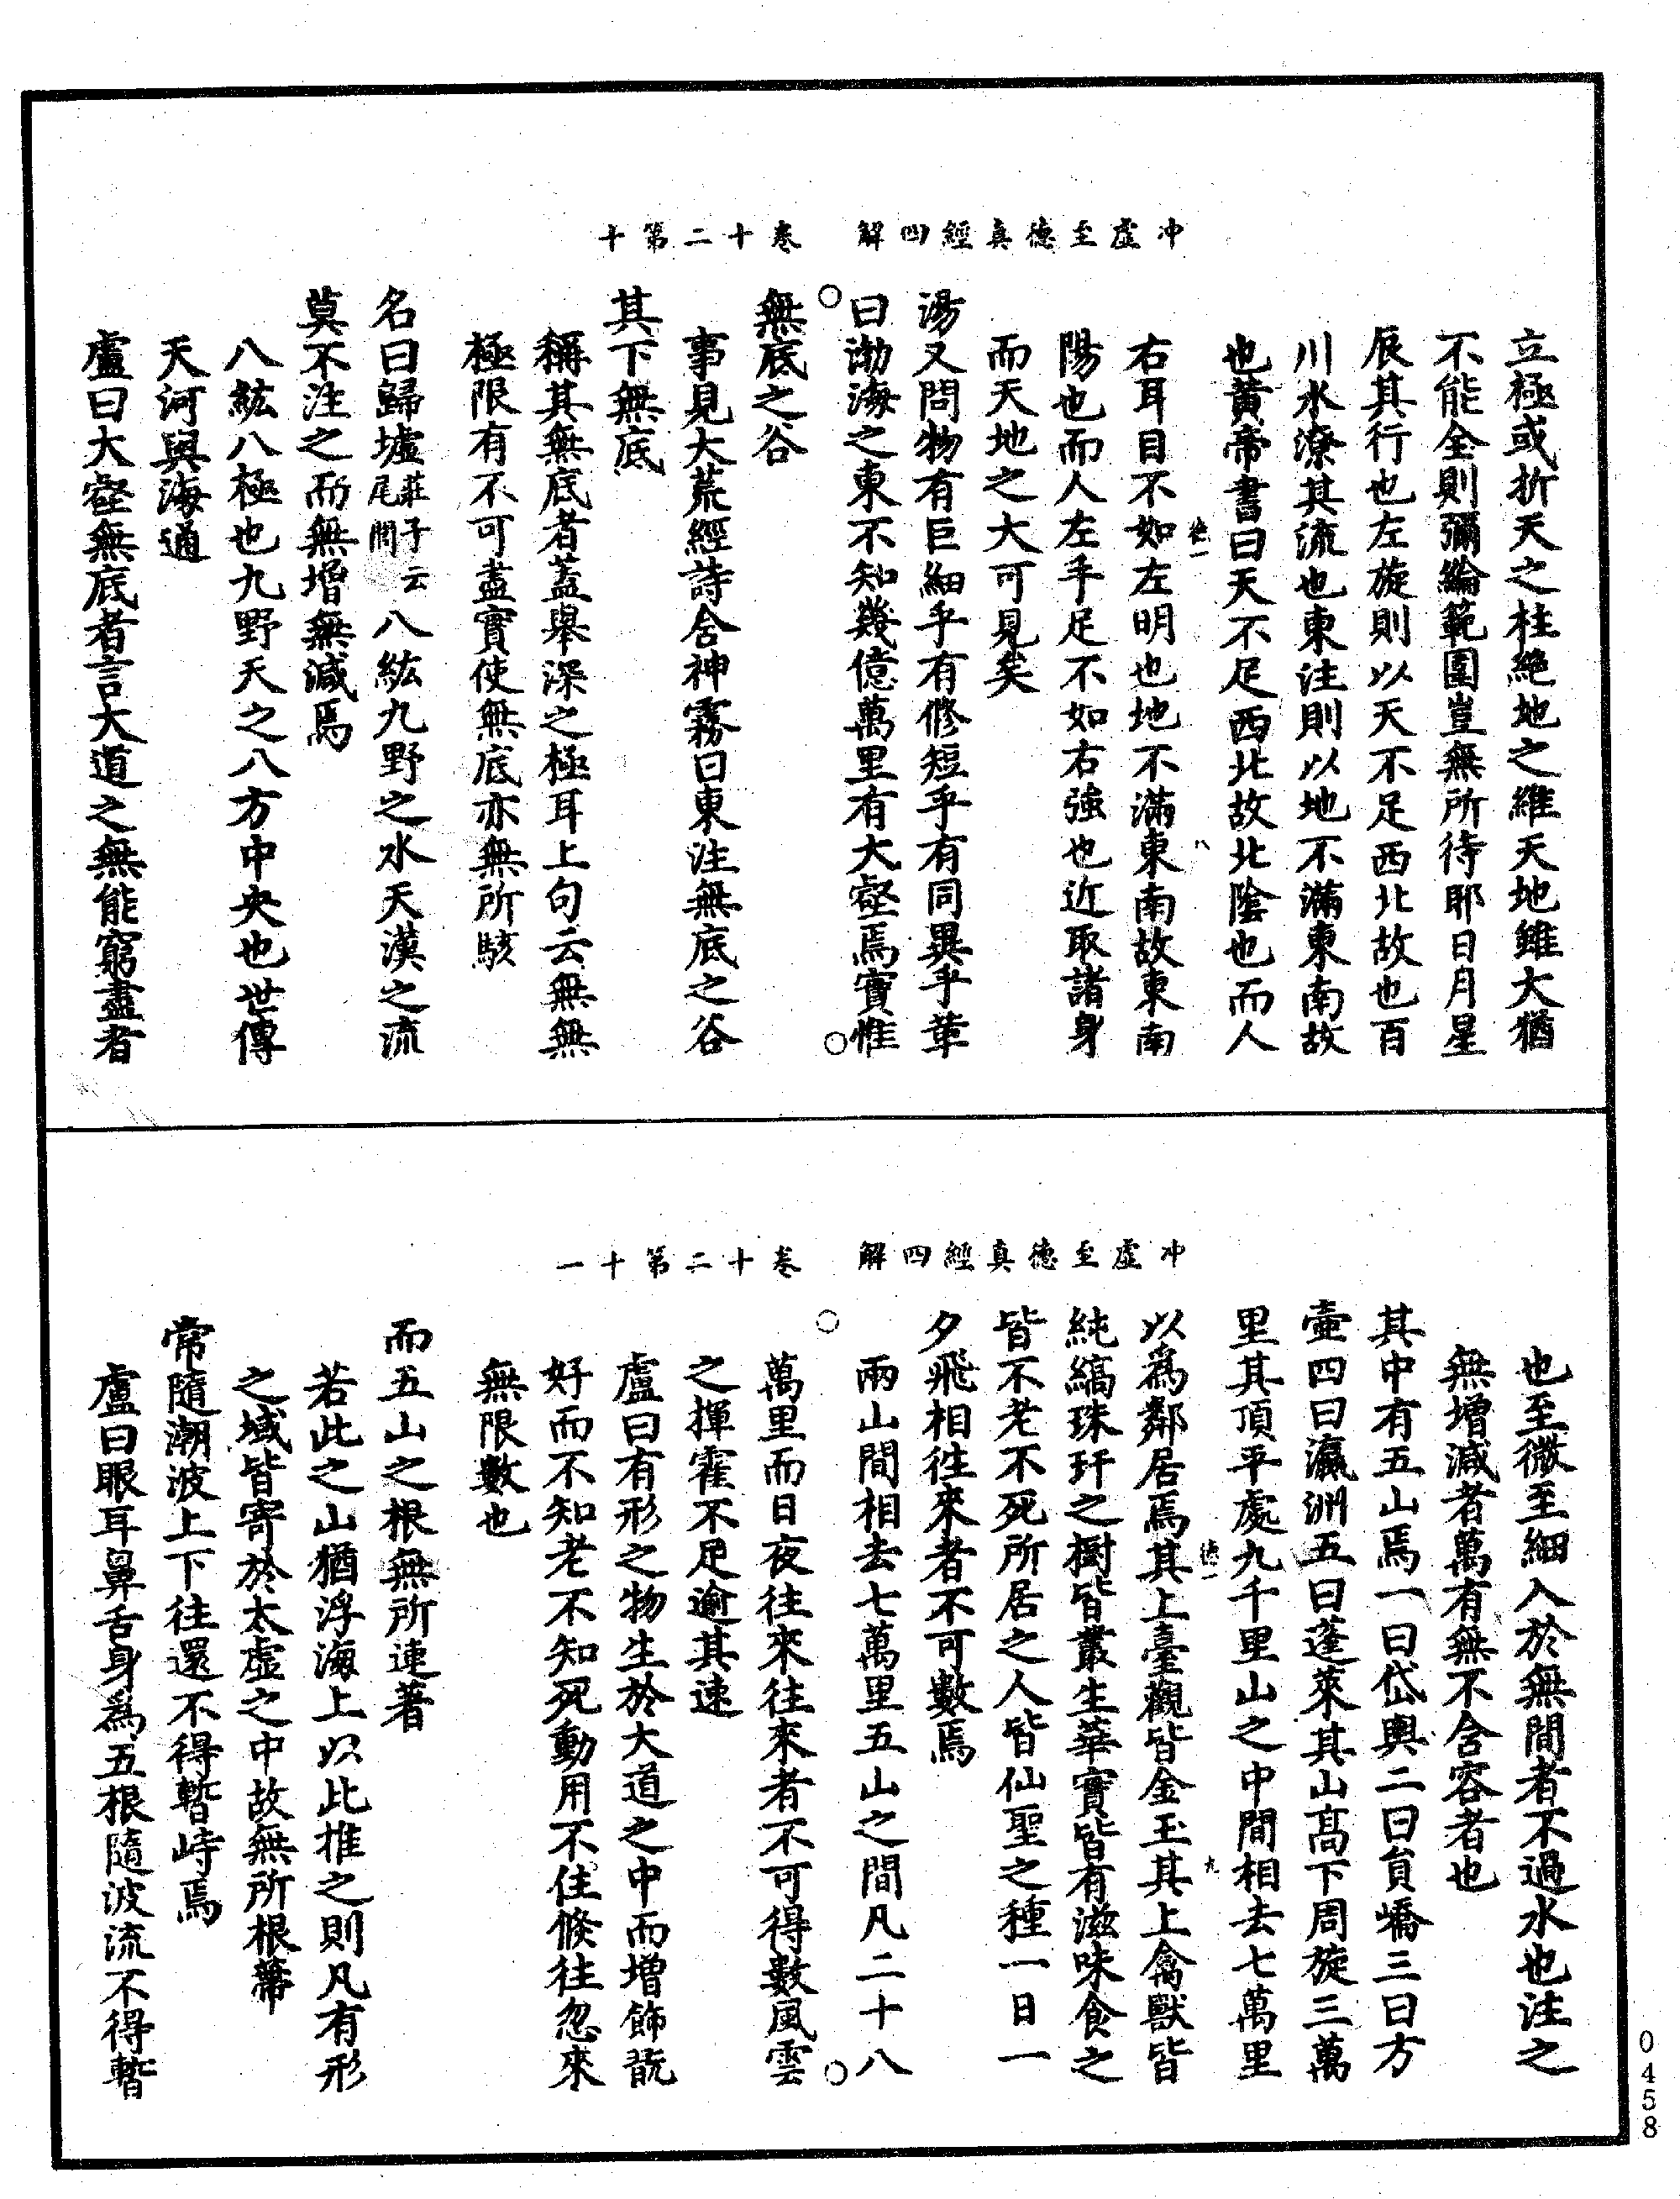 冲虛至德真經四解　卷十二第十
立極或折天之柱絕地之維天地雖大猶
不能全則彌綸範圍豈無所待耶日月星
辰其行也左旋則以天不足西北故也百
川水潦其流也東注則以地不滿東南故
也黃帝書曰天不足西北故北陰也而人
右耳目不如左明也地不滿東南故東南
陽也而人左手足不如右強也近取諸身
而天地之大可見矣
湯又問物有巨細乎有修短乎有同異乎革
曰渤海之東不知幾億萬里有大壑焉實惟
無底之谷
事見大荒經詩含神霧曰東注無底之谷
其下無底
稱其無底者蓋舉深之極耳上句云無無
極限有不可盡實使無底亦無所駭
名曰歸墟莊子云尾閭八紘九野之水天漢之流
莫不注之而無增無減焉
八紘八極也九野天之八方中央也世傳
天河與海通
盧曰大壑無底者言大道之無能窮盡者
冲虛至德真經四解　卷十二第十一
也至微至細入於無間者不過水也注之
無增減者萬有無不含容者也
其中有五山焉一曰岱輿二曰負嶠三曰方
壺四曰瀛洲五曰蓬萊其山高下周旋三萬
里其頂平處九千里山之中間相去七萬里
以爲鄰居焉其上臺觀皆金玉其上禽獸皆
純縞珠玕之樹皆叢生華實皆有滋味食之
皆不老不死所居之人皆仙聖之種一日一
夕飛相往來者不可數焉
兩山間相去七萬里五山之間凡二十八
萬里而日夜往來往來者不可得數風雲
之揮霍不足逾其速
盧曰有形之物生於大道之中而增飾翫
好而不知老不知死動用不住倏往忽來
無限數也
而五山之根無所連著
若此之山猶浮海上以此推之則凡有形
之域皆寄於太虛之中故無所根蔕
常隨潮波上下往還不得暫峙焉
盧曰眼耳鼻舌身爲五根隨波流不得暫
徳一
八
徳一
九
0458